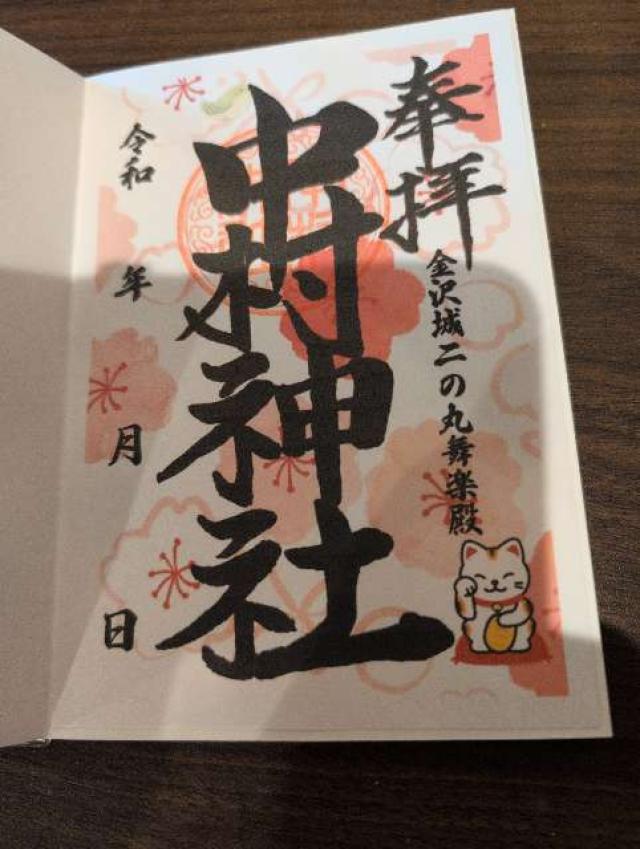 奉拝
金沢城二の丸舞楽殿
中村神社
令和 年 月 日